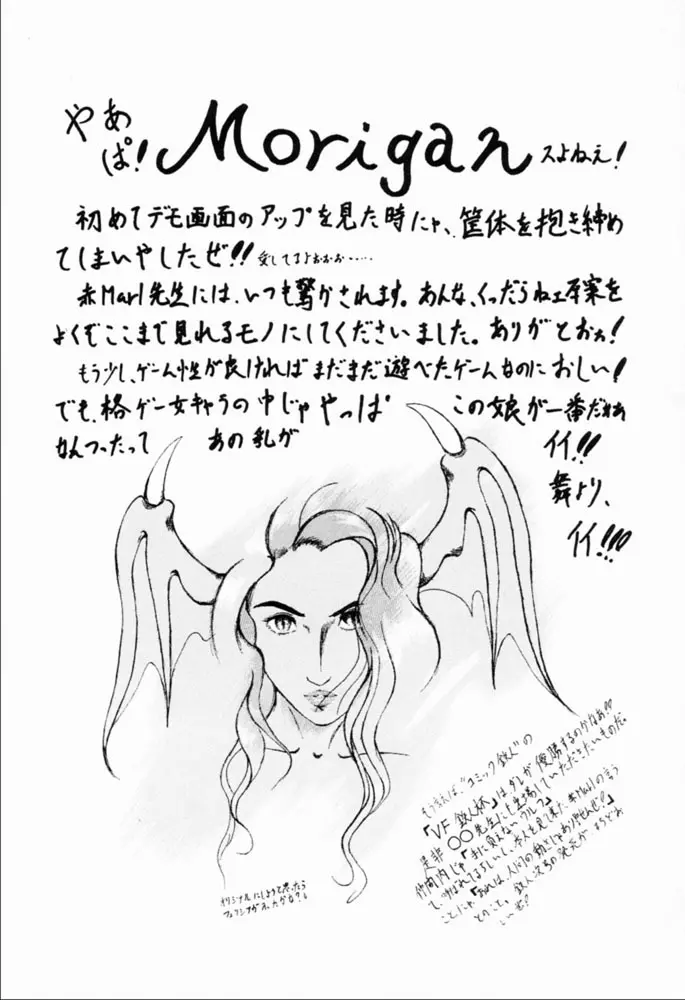 やあ
ぱ! Morigan スよねぇ!
初めてデモ画面のアップを見た時にゃ、筐体を抱き締め
てしまいやしたぜ!! 愛してるよおおお……
赤Marl先生には、いつも驚かされます。あんな、くっだらねェ原案を
よくぞここまで見れるモノにしてくださいました。ありがとおぉ!
もう少し、ゲーム性が良ければまだまだ遊べたゲームなのにおしい!
でも、格ゲー女キャラの中じゃやっぱ この娘が一番だねぇ
なんつったって あの乳が イイ!!
舞より、
イイ!!!
オリジナルにしようと思ったら
もう言えば"コミック鉄人"の
「VF鉄人杯」は、ダレが優勝するのかなあ!!
是非〇〇先生にも出場していただきたいものだ。
竹間内じゃ
て、呼ばれてるらしいし、本人を見て来た赤Marlの言う
ことにゃ、「あれは、人間の動きじゃありやせんぜ!」
とのこと。